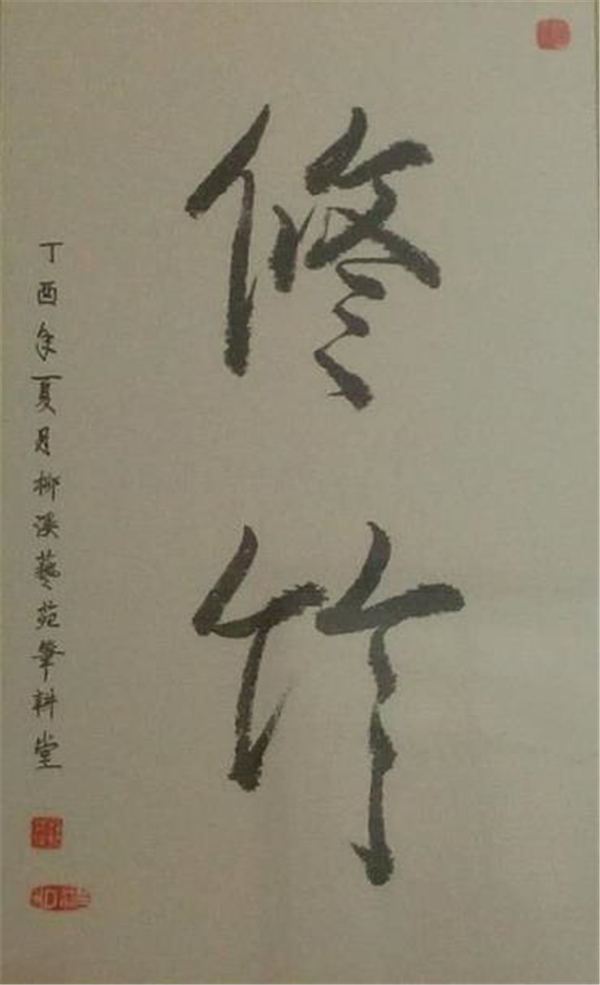 修竹
丁酉年夏月柳溪藝苑筆耕堂